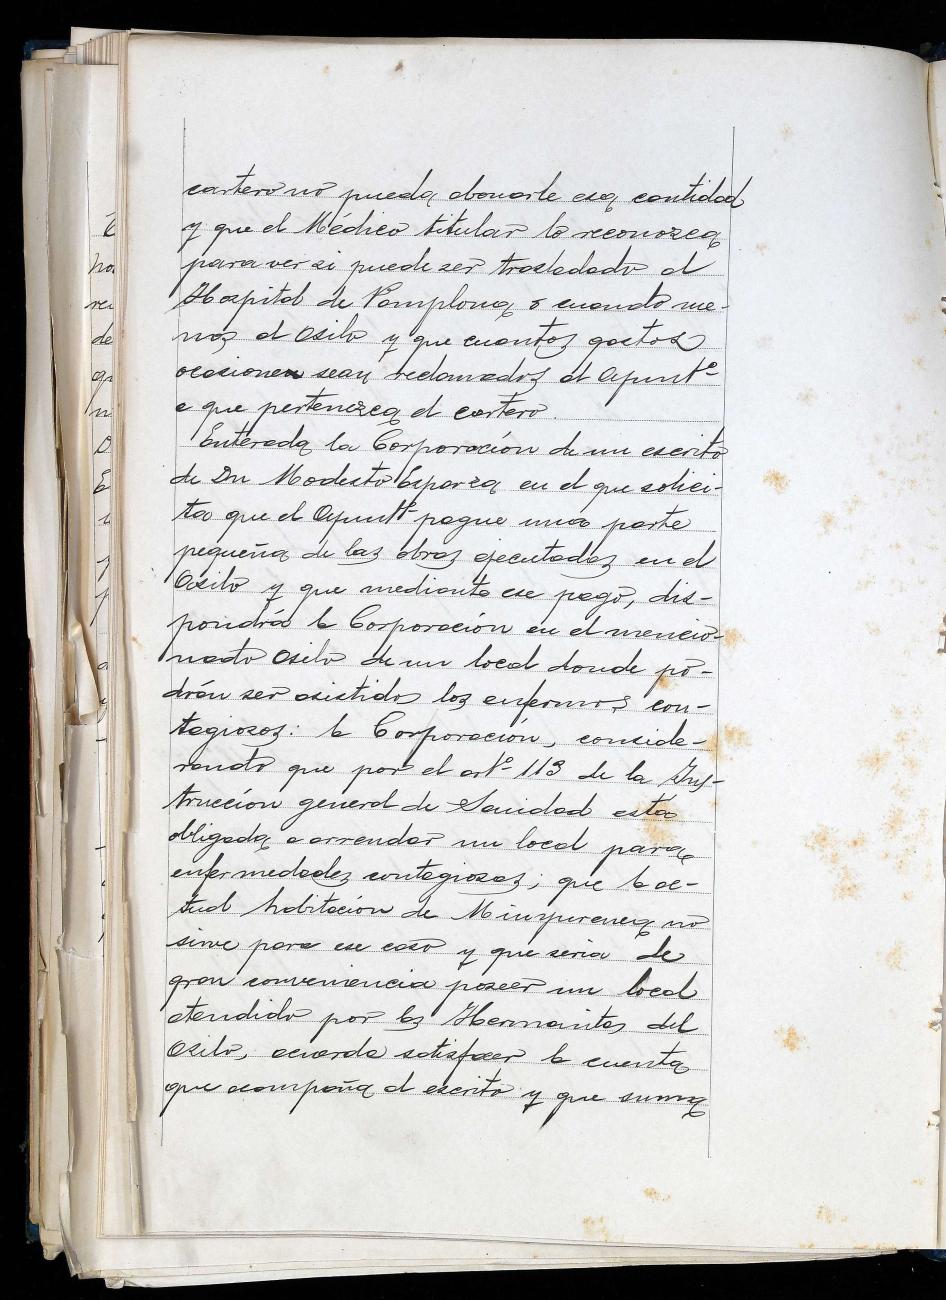 cartero no pueda abonarle esa cantidad
y que el Médico titular lo reconozca
para ver si puede ser trasladado al
Hospital de Pamplona o cuando me-
nos al Asilo y que cuantos gastos
ocasionen sean reclamados al Ayuntº
a que pertenezca el cartero.
Enterada la Corporación de un escrito
de Dn Modesto Esparza en el que solici-
ta que el Ayuntº pague una parte
pequeña de las obras ejecutadas en el
Asilo y que mediante ese pago, dis-
pondrá la Corporación en el mencio-
nado Asilo de un local donde po-
drán ser asistidos los enfermos con-
tagiosos: la Corporación, conside-
rando que por el artº 113 de la Ins-
trucción general de Sanidad esta
obligada a arrendar un local para
enfermedades contagiosas; que la ac-
tual habitación de Minyurenea no
sirve para ese caso y que seria de
gran conveniencia poseer un local
atendido por las Hermanitas del
Asilo, acuerda satisfacer la cuenta
que acompaña al escrito y que suma